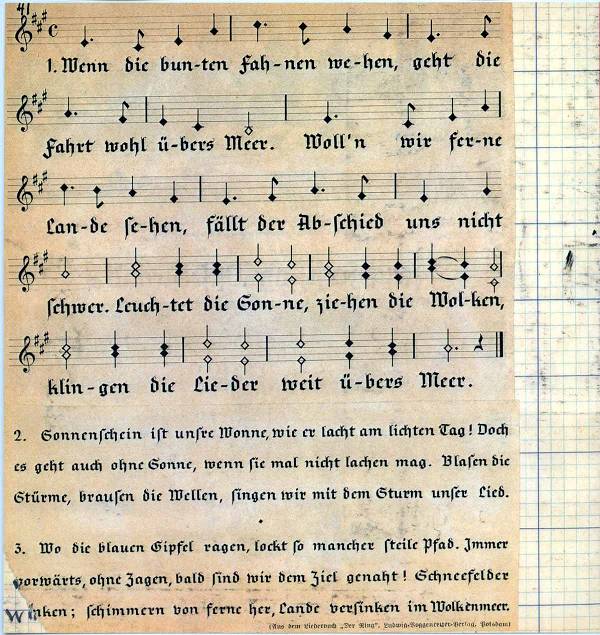 41
1. Wenn die bun-ten Fah-nen we-hen, geht die
Fahrt wohl ü-bers Meer. Woll'n wir fer-ne
Lan-de se-hen, fällt der Ab-schied uns nicht
schwer. Leuch-tet die Son-ne, zie-hen die Wol-ken,
klin-gen die Lie-der weit ü-bers Meer.
2. Sonnenschein ist unsre Wonne, wie er lacht am lichten Tag! Doch
es geht auch ohne Sonne, wenn sie mal nicht lachen mag. Blasen die
Stürme, brausen die Wellen, singen wir mit dem Sturm unser Lied.
3. Wo die blauen Gipfel ragen, lockt so mancher steile Pfad. Immer
vorwärts, ohne Zagen, bald sind wir dem Ziel genaht! Schneefelder
winken; schimmern von ferne her, Lande versinken im Wolkenmeer.
(Aus dem Liederbuch „Der Ring", Ludwig-Voggenreiter-Verlag, Potsdam)